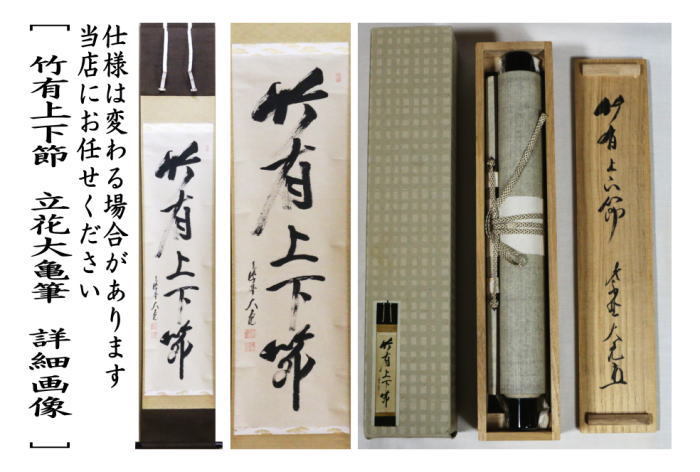 仕様は変わる場合があります
当店にお任せください
[竹有上下節 立花大亀筆 詳細画像]
竹有上下節
竹有上下節
竹有上下節
竹有上下節